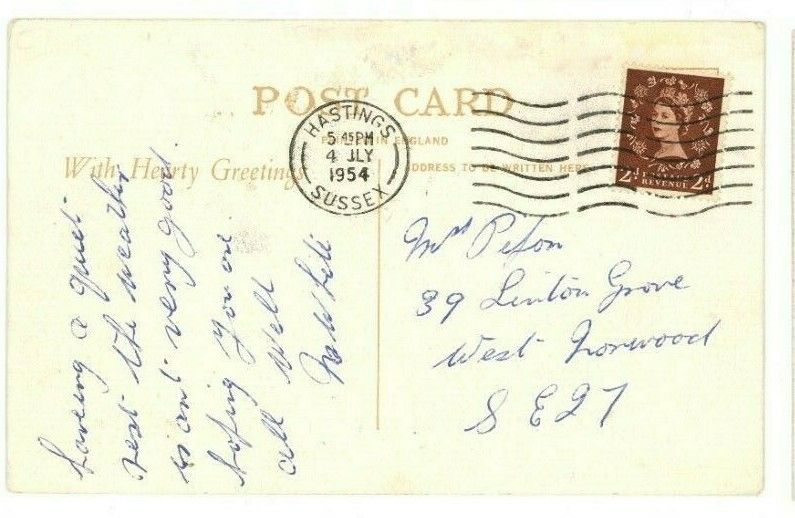 POST CARD
PRINTED IN ENGLAND
With Hearty Greetings
ADDRESS TO BE WRITTEN HERE
HASTINGS
5 45 PM
4 JLY
1954
SUSSEX
2D POSTAGE REVENUE 2D
haveing a quiet
rest the weather
is ant very good.
hoping you are
all well
Mrs
39 Linton Grove
West Norwood
S E 27